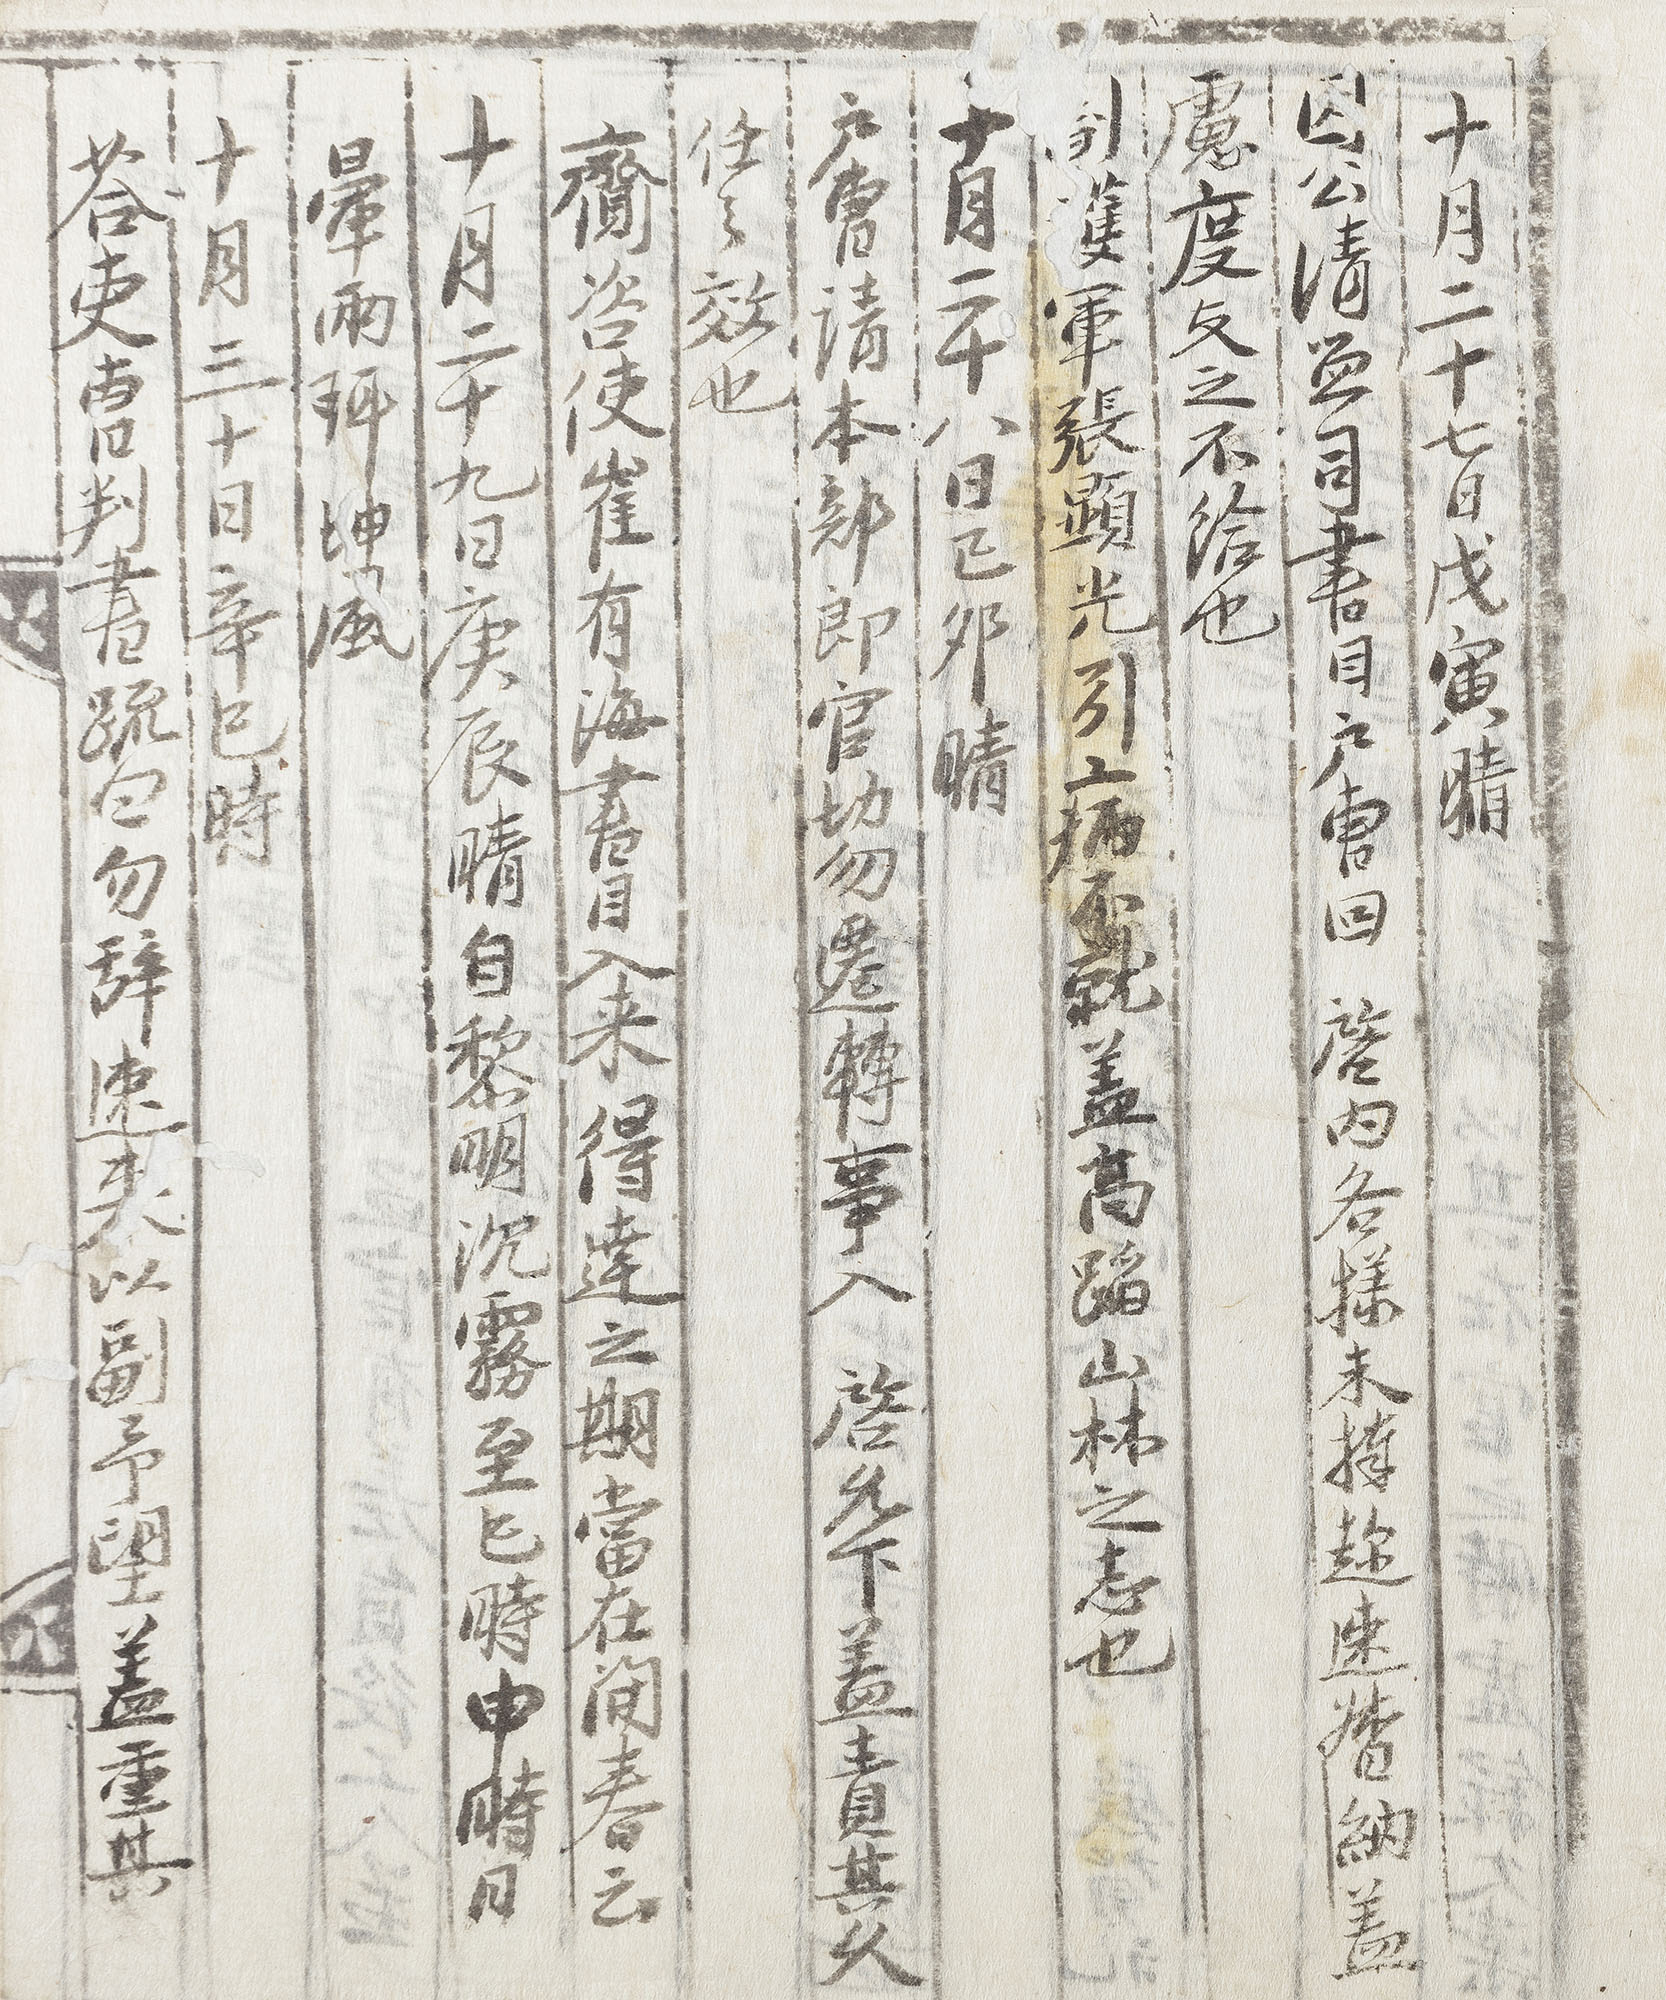 十月二十七日戊寅晴
因公淸監司書目戶曹回 啓內各樣未捧趂速督納盖
慮度支之不給也
副護軍張顯光引病不就盖高蹈山林之志也
十月二十八日己卯晴
戶曹請本部郎官切勿遷轉事入 啓允下盖責其久
任之效也
齎咨使崔有海書目入来得達之期當在開春云
十月二十九日庚辰晴自黎明沉霧至巳時申時日
暈兩珥坤風
十月三十日辛巳時
荅吏曹判書疏曰勿辞速来以副予望盖重其